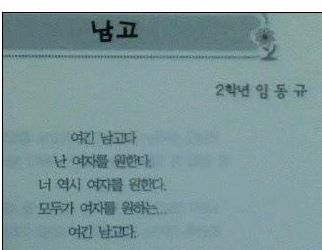 남고
2학년 임동규
여긴 남고다
난 여자를 원한다.
너 역시 여자를 원한다.
모두가 여자를 원하는...
여긴 남고다.